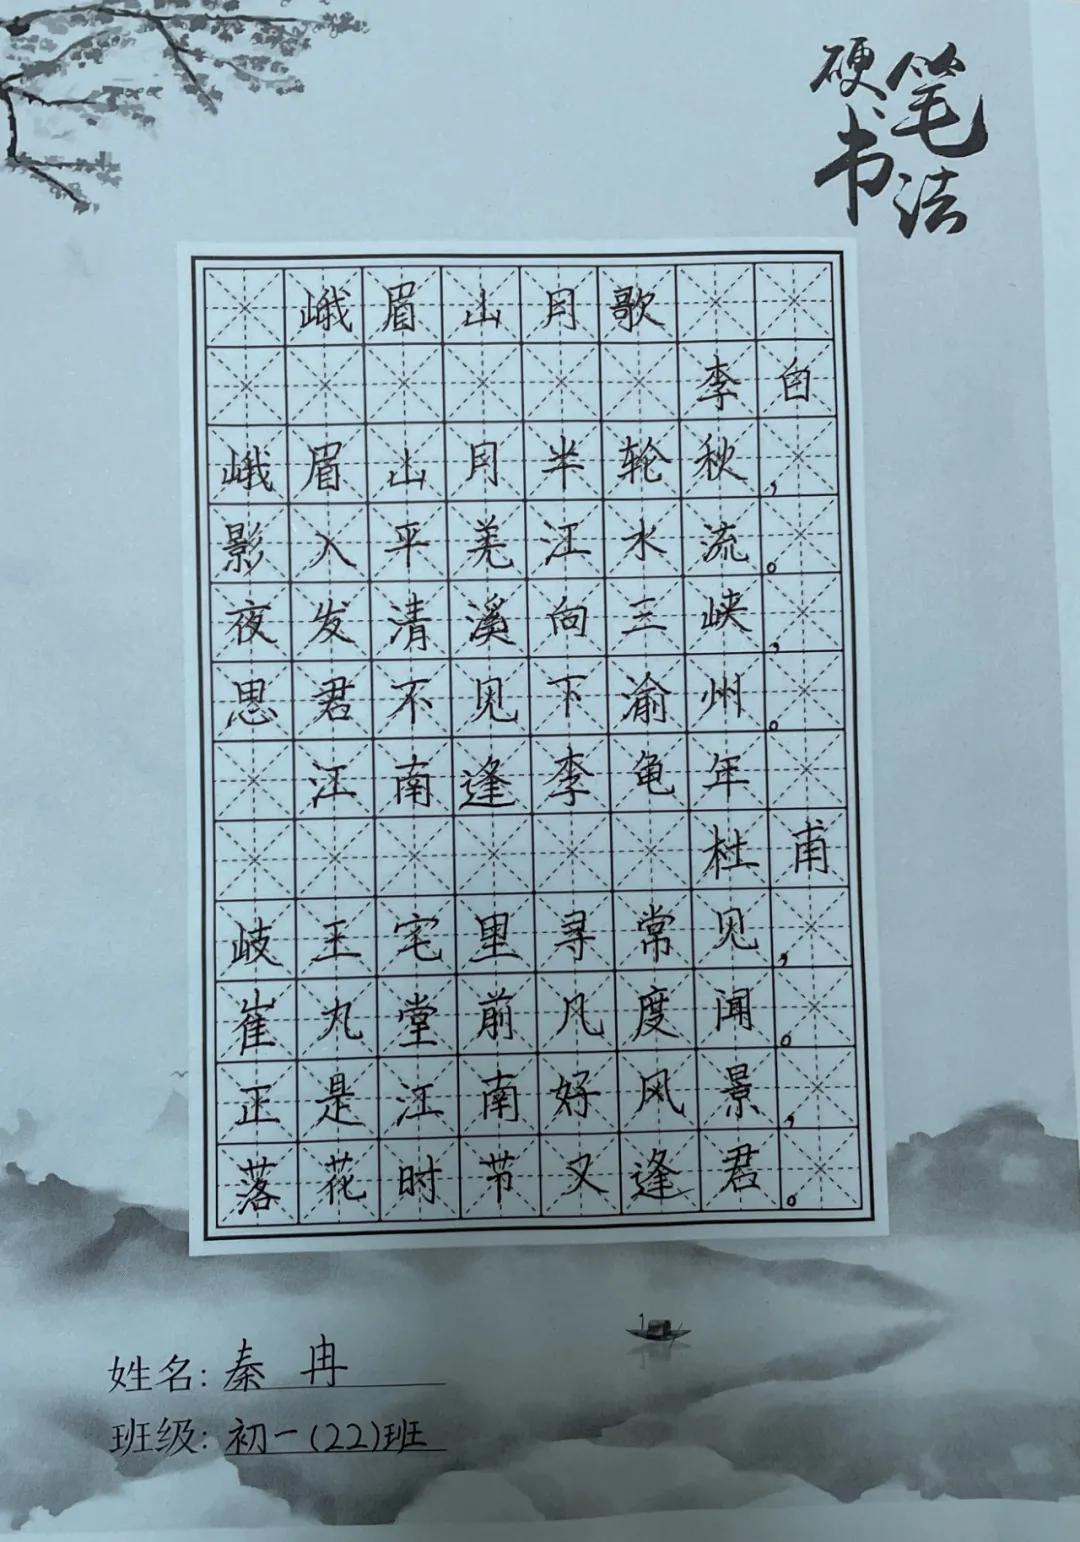 硬笔
书法
峨眉山月歌
李白
峨眉山月半轮秋,
影入平羌江水流。
夜发清溪向三峡,
思君不见下渝州。
江南逢李龟年
杜甫
岐王宅里寻常见,
崔九堂前几度闻。
正是江南好风景,
落花时节又逢君。
姓名:秦冉
班级:初一(22)班